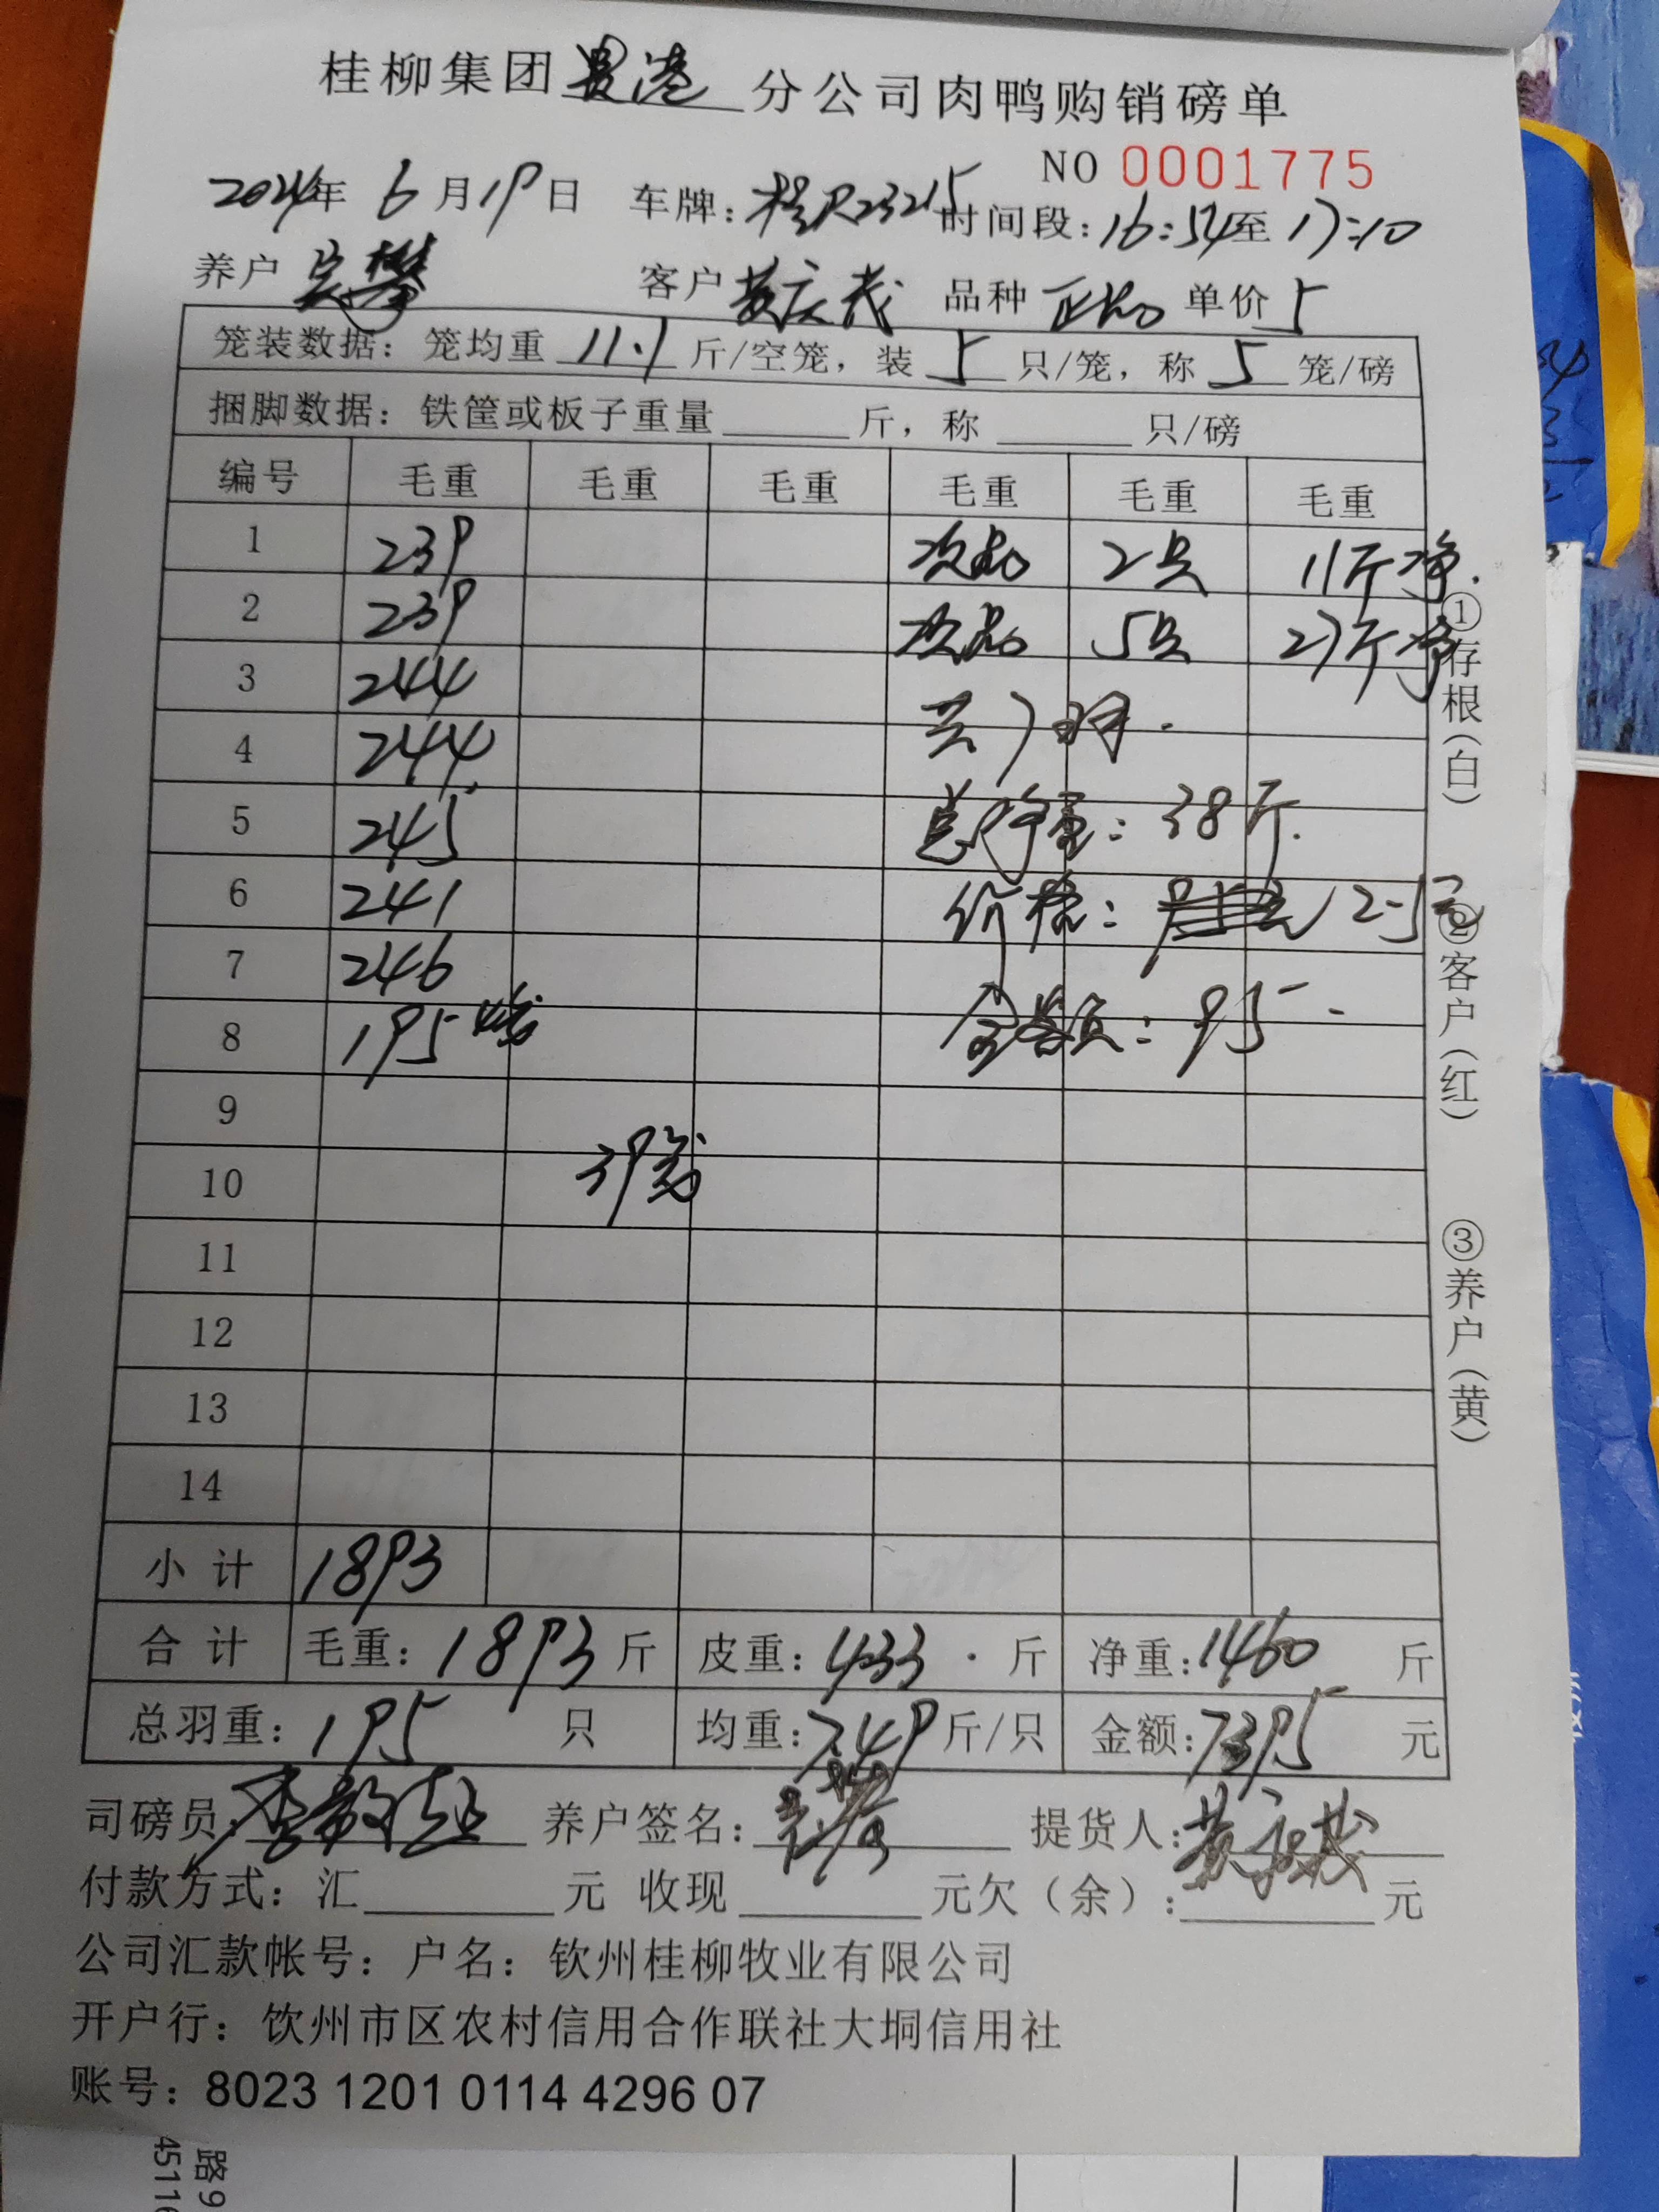 桂柳集团贵港分公司肉鸭购销磅单
NO 0001775
2024年 6月19日 车牌:桂R23215 时间段:16:54至17:10
养户 吴攀 客户 黄庆茂 品种 正品 单价 5
笼装数据: 笼均重 11.1 斤/空笼, 装 5 只/笼, 称 5 笼/磅
捆脚数据: 铁筐或板子重量 斤, 称 只/磅
编号 毛重 毛重 毛重 毛重 毛重 毛重
1 239 次品 2只 11斤净.
2 239 次品 5只 27斤净
3 244 共7羽.
4 244
5 245 总净重: 38斤.
6 241 价格: 2.5元
7 246
8 195 4笼 金额: 95-
9
10 39笼
11
12
13
14
小计 1893
合计 毛重: 1893 斤 皮重: 433. 斤 净重: 1460 斤
总羽重: 195 只 均重: 7.49 斤/只 金额: 7395 元
司磅员: 养户签名: 提货人: 黄庆茂
付款方式: 汇 元 收现 元欠(余): 元
公司汇款帐号: 户名: 钦州桂柳牧业有限公司
开户行: 饮州市区农村信用合作联社大垌信用社
账号: 8023 1201 0114 4296 07
①存根(白)
②客户(红)
③养户(黄)
路9
45116